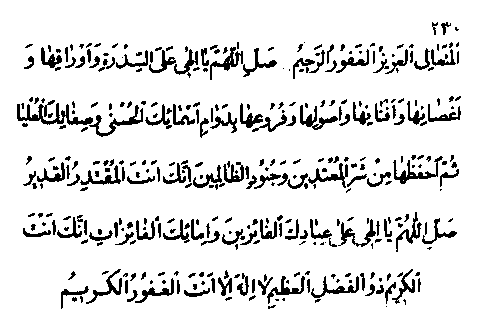 ٢٣٠
المتعالی العزیز الغفور الرحیم صل اللّهمّ یا الهی علی السّدرة و اوراقها و
اغصانها و أفنانها و اصولها و فروعها بدوام اسمائک الحسنی و صفاتک العلیا
ثمّ احفظها من شرّ المعتدین و جنود الظالمین انّک انت المقتدر القدیر
صلّ اللّهمّ یا الهی علی عبادک الفائزین و امائک الفائزات انّک انت
الکریم ذو الفضل العظیم لا اله الّا انت الغفور الکریم